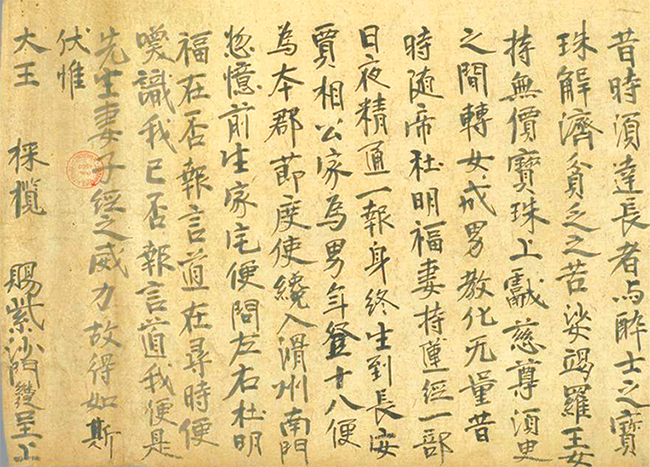 昔時須達長者与酔士之寶
珠解濟貧乏之苦娑竭羅王女
持無價寶珠上獻慈尊須臾
之間轉女成男教化无量昔
時随帝杜明福妻持蓮經一部
日夜精通一報身終生到長安
賈相公家為男年登十八便
為本郡節度使繞入滑州南門
忽憶前生家宅便問左右杜明
福在否報言道在尋時便
喚識我已否報言道我便是
先生妻子經之威力故得如斯
伏惟
大王 採攬 賜紫沙門呈上